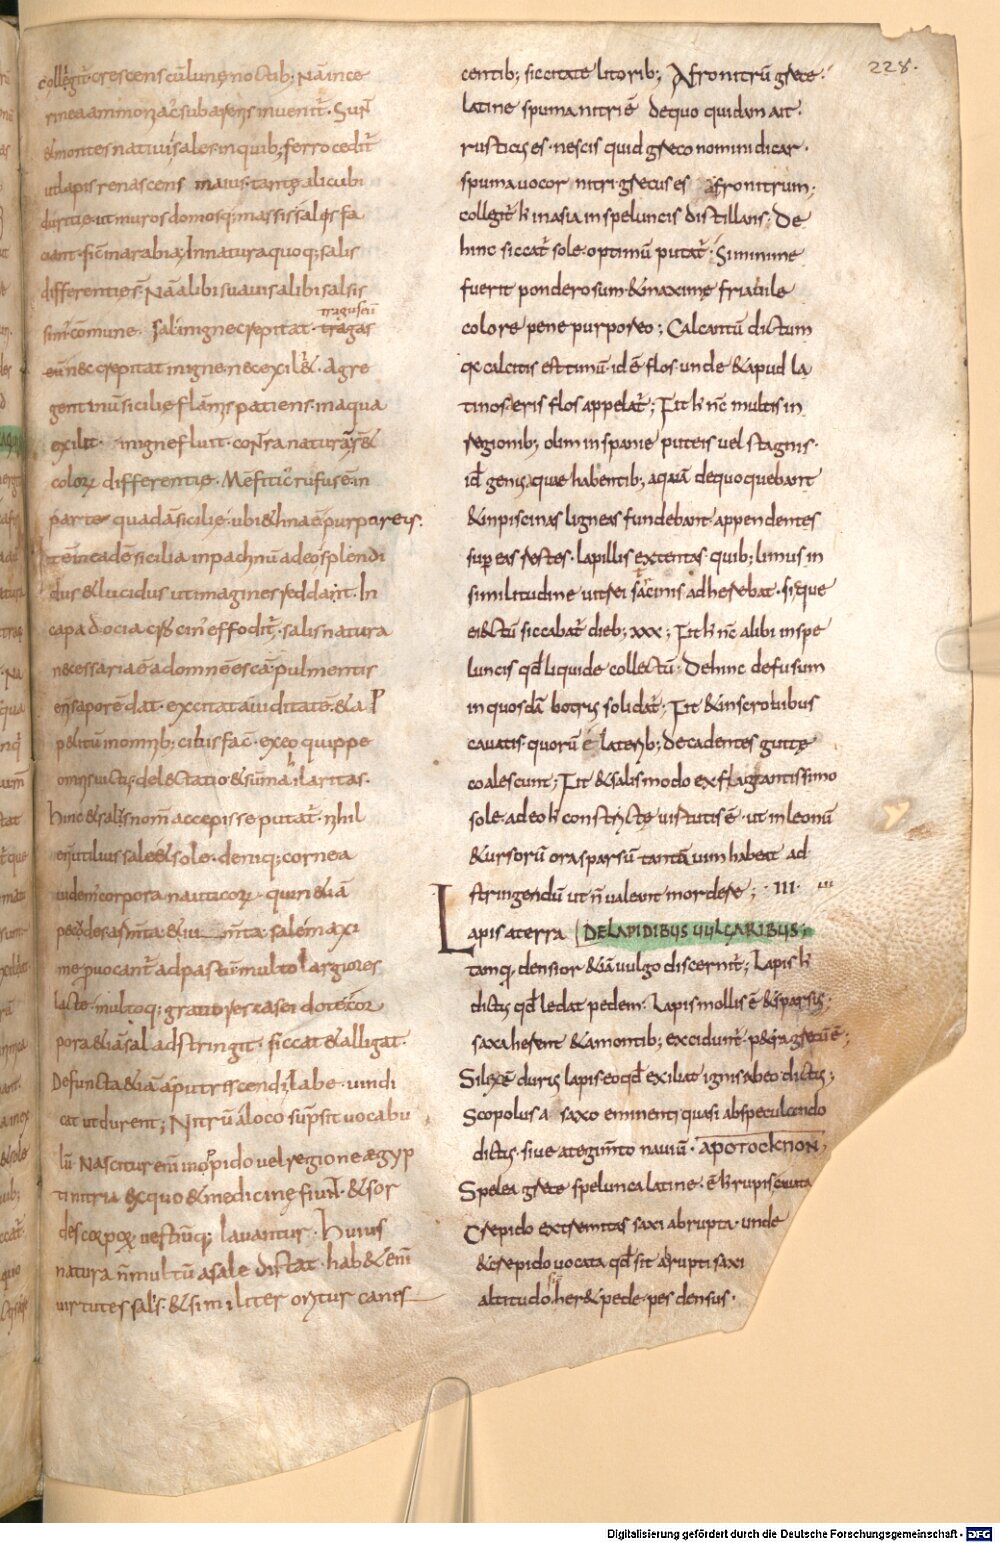 228.
collegit̄ crescens cũ lune noctib; Nã in ce
rinea ammoniac̕ sub arenis invenit̄. Sun̄
& montes nativi sales in quib; ferro cedit̄
ut lapis renascens maius tante alicubi
duritie ut muros domosq; massis salis fa
ciant. sic̄ in arabia. In natura quoq; salis
differenties. Nã alibi suavis alibi salsis
tragaseũ
sim̕ cõmune. sal in igne crepitat. tragas
eũ nec crepitat in igne nec exil&. Agre
gentinũ sicilie flam̃is patiens in aqua
exilit. in igne fluit. contra naturã &
coloꝝ differentie. Mefitic̕ rufus ẽ in
parte quadã sicilie. ubi & hna ẽ purpureis.
Itẽ in eadẽ sicilia in pachinũ adeo splendi
dus & lucidus ut imagines reddant. In
capadocia crocin̕ effodit̄. salis natura
necessaria ẽ ad omnẽ escã. pulmentis
eñ saporẽ dat. excitat aviditatẽ. & ap
p&itũ in omnib; cibis fac̄. ex eo quippe
omnis victus delectatio & sũma ilaritas.
Hinc & salis nom̃ accepisse putat̄. nihil
eñ utilius sale & sole. deniq; cornea
videm̕ corpora nauticoꝝ. quin &iã
pecodes armta & iumta sale maxi
me pvocant̄ ad pastũ multo largiores
lacte. multoq; gratiores casei dote. cor
pora &iã sal adstringit. siccat & alligat.
Defuncta &iã a putriscendi labe. vindi
cat ut durent; Nitrũ a loco sũpsit vocabu
lũ. Nascitur eñ in opido vel regione ægyp
ti nitria ex quo & medicine fiun̄t. & sor
des corpoꝝ. vestiũq; lavantur. Huius
natura ñ multũ a sale distat. hab& eñ
virtutes salis. & similiter oritur canes
centib; siccitate litorib; Afronitrũ grece.
latine spuma nitri ẽ de quo quidam ait.
rusticus es. nescis quid greco nomini dicar.
spuma vocor nitri. grecus es afronitrum;
collegit̄ h̄ in asia in speluncis distillans. De
hinc siccat̄ sole. optimũ putat̄. Si minime
fuerit ponderosum & maxime friabile
colore pene purporeo; Calcantũ dictum
qa calcitis est timũ. id ẽ flos. unde & apud la
tinos eris flos appelat̄; Fit h̄ nc̄ multis in
regionib; olim in spanie puteis vel stagnis.
id genus aque habentib; aquã de quo quebant
& in piscinas ligneas fundebant appendentes
super eas restes. lapillis extentas. quib; limus in
similitudine vitrei sacinis adherebat. sicque
ei&tũ siccabat̄ dieb; xxx; Fit h̄ nc̄ alibi in spe
luncis qd̄ liquide collectũ. Dehinc defusum
in quosdã botris solidat̄. Fit & in scrobibus
cavatis. quorũ ẽ laterib; decadentes gutte
coalescunt; Fit & salis modo ex flagrantissimo
sole. adeo h̄ constricte virtutis ẽ. ut in leonũ
& ursorũ ora sparsũ tantã vim habeat ad
stringendũ ut ñ valeant mordere; · III · III
Lapis a terra DE LAPIDIBUS VULGARIBUS;
tamq, densior &iã vulgo discernit̄; Lapis h̄
dictus qd̄ ledat pedem. Lapis mollis ẽ & sparsus;
saxa herent & a montib; excidunt̄. p&ra grecũ ẽ;
Silex ẽ durus lapis eo qd̄ exiliat ignis ab eo dictus;
Scopolus a saxo eminenti quasi ab speculando
dictus. sive a tegimto naviũ. APOTOCKNON;
Spelea grece spelunca latine. ẽ h̄ rupis cavata
Crepido extremitas saxi abrupta. unde
& crepido vocata qd̄ sit abrupti saxi
altitudo. sic her& pede pes densus.
Digitalisierung gefördert durch die Deutsche Forschungsgemeinschaft - DFG